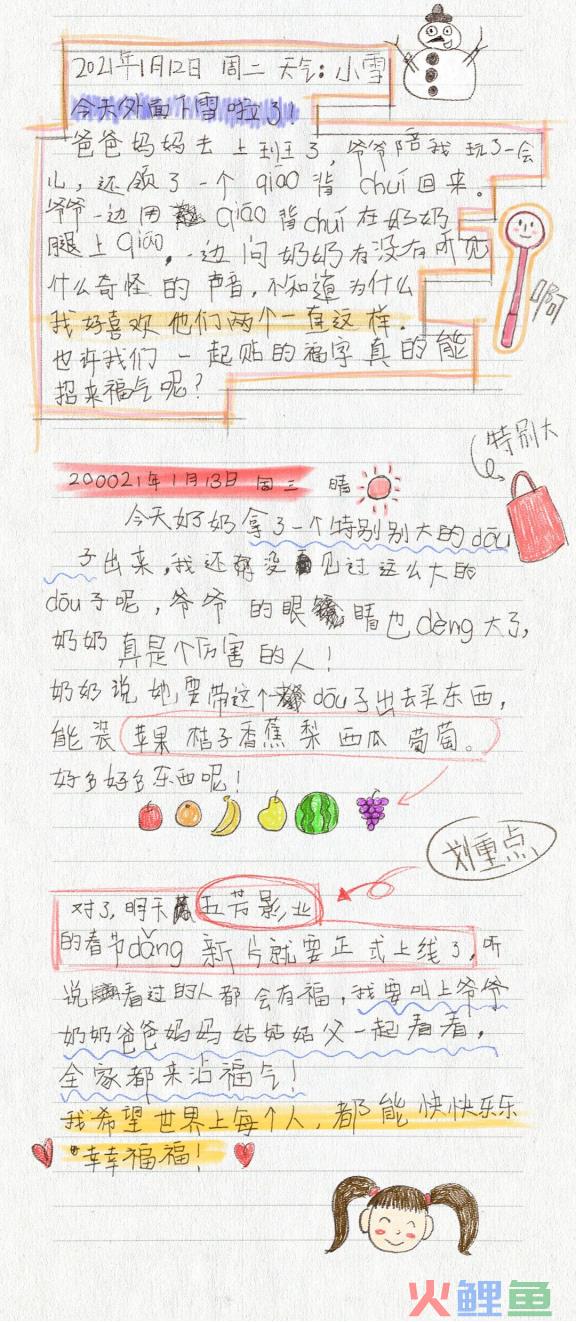 2021年1月12日 周二 天气:小雪
今天外面下雪啦了!
爸爸妈妈去上班了,爷爷陪我玩了一会
儿,还领了一个qiāo背chuí回来。
爷爷一边用qiāo背chuí在奶奶
腿上qiāo,一边问奶奶有没有听见
什么奇怪的声音,不知道为什么
啊
我好喜欢他们两个一直这样.
也许我们一起贴的福字真的能
招来福气呢?
特别大
200021年1月13日 周三 晴
今天奶奶拿了一个特别别大的dōu
子出来,我还没见过这么大的
dōu子呢,爷爷的眼睛也dèng大了,
奶奶真是个厉害的人!
奶奶说她要带这个dōu子出去买东西,
能装苹果桔子香蕉梨西瓜葡萄。
好多好多东西呢!
划重点
对了,明天五芳影业
的春节dǎng新片就要正式上线了,听
说看过的人都会有福,我要叫上爷爷
奶奶爸爸妈妈姑姑姑父一起看看,
全家都来沾福气!
我希望世界上每个人,都能快快乐乐
幸幸福福!
火鲤鱼